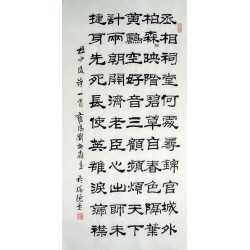 丞相祠堂何處尋錦官城外
柏森々映階碧草自春色隔葉
黃鸝空好音三顧頻煩天下
計兩朝開濟老臣心出師未
捷身先死長使英雄淚滿襟
杜少陵詩一首